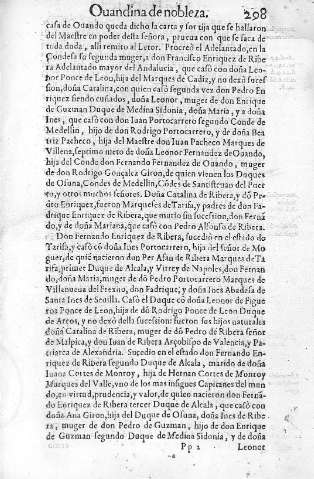 Ouandina de nobleza. 298
casa de Ouando queda dicho la carta y sortija que se hallaron
del Maestre en poder desta señora, prueua con que se saca de
toda duda, alli remito al Letor. Procreó el Adelantado, en la
Condesa su segunda muger, a don Francisco Enriquez de Ribe
ra Adelantado mayor del Andalucia, que casó con doña Leo-
nor Ponce de Leon, hija del Marques de Cadiz, y no dexó suces
sion, doña Catalina, con quien casó segunda vez don Pedro En
riquez siendo cuñados, doña Leonor, muger de don Enrique
de Guzman Duque de Medina Sidonia, doña Maria, y a doña
Ines, que casó con don Iuan Portocarrero segundo Conde de
Medellin, hijo de don Rodrigo Portocarrero, y de doña Bea
triz Pacheco, hija del Maestre don Iuan Pacheco Marques de
Villena, septimo nieto de doña Leonor Fernandez de Ouando,
hija del Conde don Fernando Fernandez de Ouando, muger
de don Rodrigo Gonçalez Giron, de quien vienen los Duques
de Osuna, Condes de Medellin, Códes de Santisteuan del Puer
to, y otros muchos señores. Doña Catalina de Ribera, y dó Pe
dro Enriquez, fueron Marqueses de Tarifa, y padres de don Fa-
drique Enriquez de Ribera, que murio sin sucession, don Ferná
do, y de doña Mariana, que casó con don Pedro Afonso de Ribera.
Don Fernando Enriquez de Ribera, sucedió en el estado de
Tarifa, y casó có doña Ines Portocarrero, hija del señor de Mo
guer, de quié nacieron don Per Afan de Ribera Marques de Ta
rifa, primer Duque de Alcala, y Virrey de Napoles, don Fernan
do, doña Maria, muger de dó Pedro Portocarrero Marques de
Villanueua del Frexno, don Fadrique, y doña Ines Abadesa de
Santa Ines de Seuilla. Casó el Duque có doña Leonor de Figue
ros Ponce de Leon, hija de dó Rodrigo Ponce de Leon Duque
de Arcos, y no dexó della sucession: fueron sus hijos naturales
doña Catalina de Ribera, muger de dó Pedro de Ribera señor
de Malpica, y don Iuan de Ribera Arçobispo de Valencia, y Pa-
triarca de Alexandria. Sucedio en el estado don Fernando En-
riquez de Ribera segundo Duque de Alcala, marido de doña
Iuana Cortes de Monroy, hija de Hernan Cortes de Monroy
Marques del Valle, vno de los mas insignes Capitanes del mun
do, en virtud, prudencia, y valor, de quien nacieron don Ferná
do Enriquez de Ribera tercer Duque de Alcala, que casó con
doña Ana Giron, hija del Duque de Osuna, doña Ines de Ribe
ra, muger de don Pedro de Guzman, hijo de don Enrique
de Guzman segundo Duque de Medina Sidonia, y de doña
Pp 2 Leonor